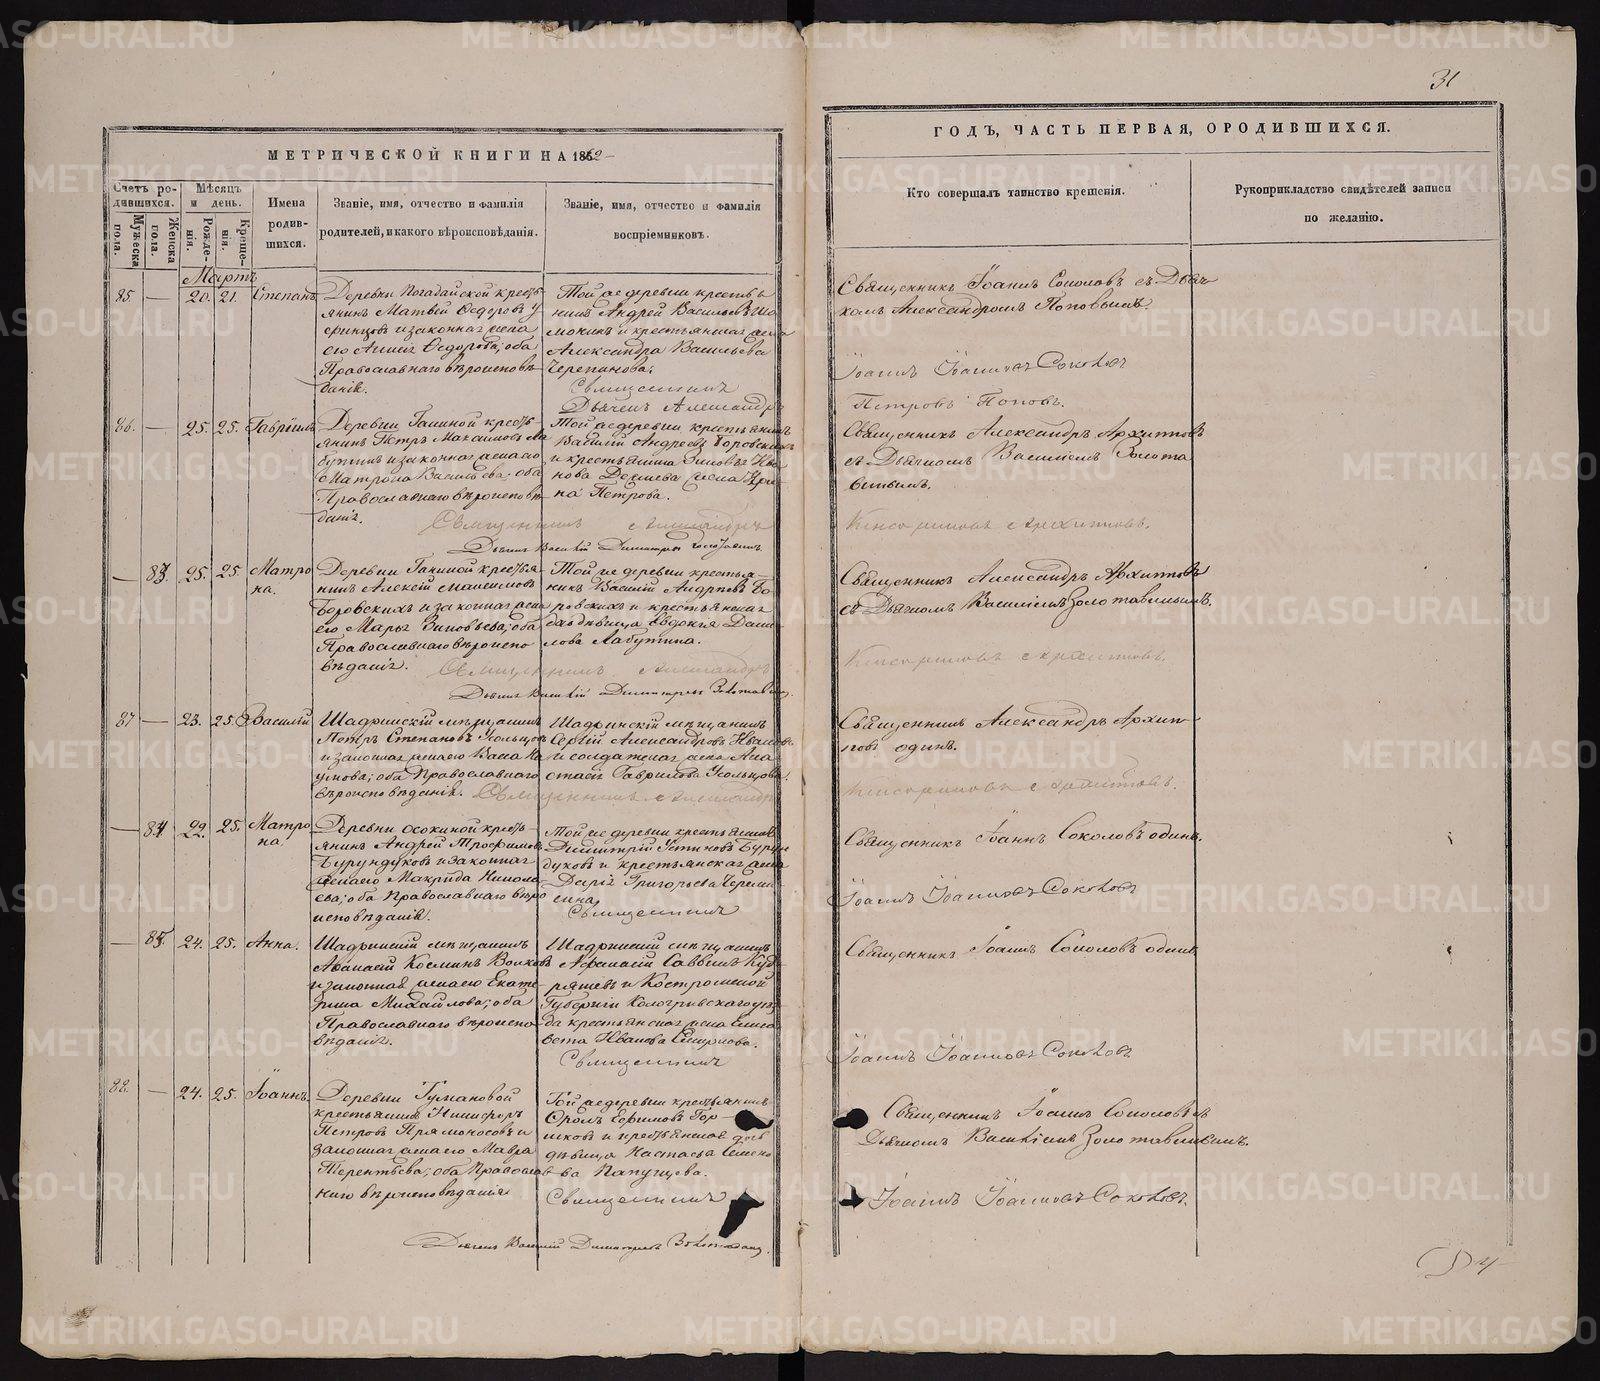 31
МЕТРИЧЕСКОЙ КНИГИ НА 1862
ГОДЪ, ЧАСТЬ ПЕРВАЯ, О РОДИВШИХСЯ.
Счетъ ро-
дившихся.
Мужеска
пола.
Женска
пола.
Мѣсяцъ
и день.
Рожде-
нія.
Креще-
нія.
Имена
родив-
шихся.
Званіе, имя, отчество и фамилія
родителей, и какого вѣроисповѣданія.
Званіе, имя, отчество и фамилія
воспріемниковъ.
Кто совершалъ таинство крещенія.
Рукоприкладство свидѣтелей записи
по желанію.
Мартъ
85. — 20. 21. Степанъ
Деревни Погадайской кресть-
янинъ Матвѣй Ѳедоровъ
и законная жена
его Анна Ѳедорова, оба
Православнаго вѣроисповѣ-
данія.
Той же деревни кресть-
нинъ Андрей Васильевъ
и крестьянская жена
Александра Васильева
Черепанова.
Священникъ
Дьячекъ Александръ
Священникъ Іоаннъ Соколовъ съ Дьяч
комъ Александромъ Поповымъ.
Іоаннъ Іоанновъ Соколовъ
Петровъ Поповъ.
86. — 25. 25. Гавріилъ
Деревни Ганиной кресть-
янинъ Петръ Максимовъ Ла
бутинъ и законная жена его
Матрона Васильева, оба
Православнаго вѣроисповѣ-
данія.
Той же деревни крестьянинъ
Василій Андреевъ Боровскихъ
и крестьянина Зиновья Ива
нова жена Ири-
на Петрова.
Священникъ Александръ
Дьячекъ Василій Димитріевъ Золотавинъ.
Священникъ Александръ Архиповъ
съ Дьячкомъ Василіемъ Золота
винымъ.
83. 25. 25. Матро
на.
Деревни Ганиной крестья-
нинъ Алексѣй Максимовъ
Боровскихъ и законная жена
его Марья Зиновьева, оба
Православнаго вѣроиспо-
вѣданія.
Той же деревни крестья-
нинъ Василій Андреевъ Бо-
ровскихъ и крестьянская
дѣвица Евдокія Дани
лова Лабутина.
Священникъ Александръ
Дьячекъ Василій Димитріевъ Золотавинъ.
Священникъ Александръ Архиповъ
съ Дьячкомъ Василіемъ Золотавинымъ.
87 — 23. 25. Василій
Шадринскій мѣщанинъ
Петръ Степановъ Усольцовъ
и законная жена его На
умова; оба Православнаго
вѣроисповѣданія.
Шадринскій мѣщанинъ
Сергій Александровъ Ивановъ
и солдатская жена Ана
стасія Гаврилова Усольцова.
Священникъ Александръ
Священникъ Александръ Архип-
повъ одинъ.
84. 22. 25. Матро
на.
Деревни Осокиной кресть-
янинъ Андрей Трофимовъ
Бурундуковъ и законная
жена его Макрида Никола
ева, оба Православнаго вѣро
исповѣданія.
Той же деревни крестьянинъ
Димитрій Устиновъ Бурун
дуковъ и крестьянская жена
Дарія Григорьева
Священникъ
Священникъ Іоаннъ Соколовъ одинъ.
Іоаннъ Іоанновъ Соколовъ
85. 24. 25. Анна.
Шадринскій мѣщанинъ
Аѳанасій Косминъ Волковъ
и законная жена его Екате-
рина Михайлова, оба
Православнаго вѣроиспо-
вѣданія.
Шадринскій мѣщанинъ
Аѳанасій Саввинъ
и Костромской
Губерніи Кологривскаго уѣз-
да крестьянская жена Елиса
вета Иванова Смирнова.
Священникъ
Священникъ Іоаннъ Соколовъ одинъ.
Іоаннъ Іоанновъ Соколовъ
88. — 24. 25. Іоаннъ.
Деревни Тумановой
крестьянинъ Никифоръ
Петровъ Прямоносовъ и
законная жена его Мавра
Терентьева, оба Православ-
наго вѣроисповѣданія
Той же деревни крестьянинъ
Фролъ Ефимовъ Гор-
шковъ и крестьянская
дѣвица Настасья Семено
ва Папугцева.
Священникъ
Дьячекъ Василій Димитріевъ Золотавинъ.
Священникъ Іоаннъ Соколовъ съ
Дьячкомъ Василіемъ Золотавинымъ.
Іоаннъ Іоанновъ Соколовъ.
METRIKI.GASO-URAL.RU